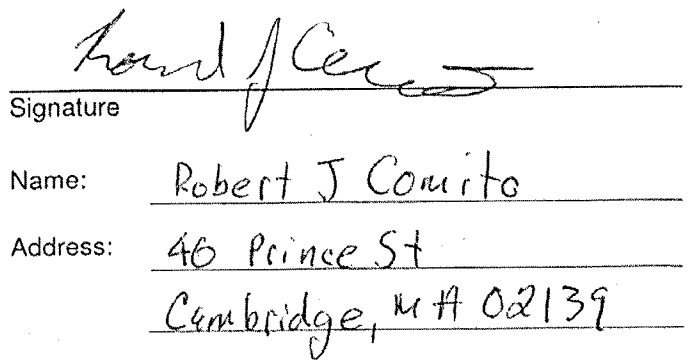 Signature
Name: Robert J Comito
Address: 46 Prince St
Cambridge, MA 02139